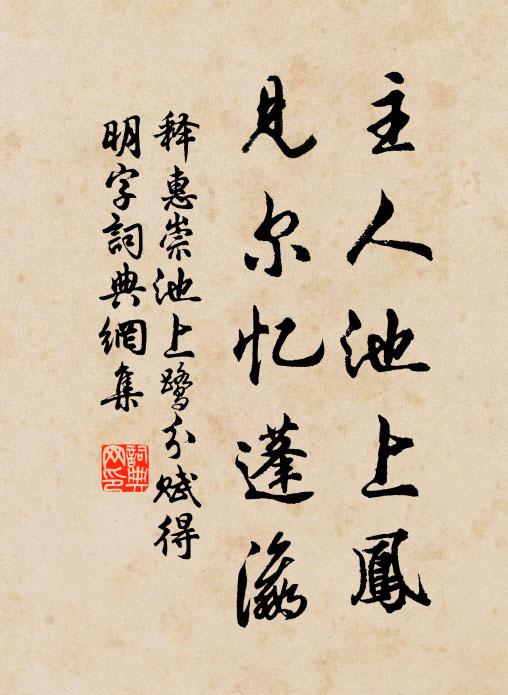 主人池上鳳
见尔忆蓬瀛
释惠崇池上鹭分赋得
明字詞典網集
詞典网印